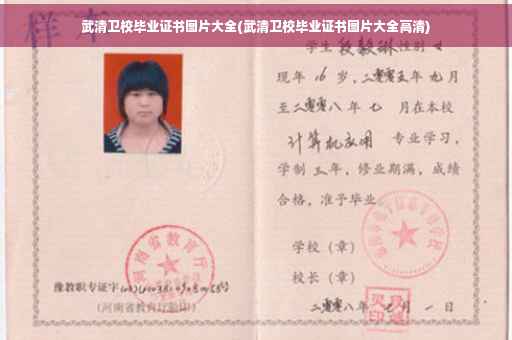 武清卫校毕业证书图片大全(武清卫校毕业证书图片大全高清)
样本
学生 段毅琳 性别 女
现年 16 岁，二零零五年 九月
至二零零八年 七 月在本校
计算机应用 专业学习，
学制 三 年，修业期满，成绩
合格，准予毕业
学校（章）
校长（章）
二零零八年 月 一 日
豫教职专证字
(河南省教育厅验印)
河南省教育厅